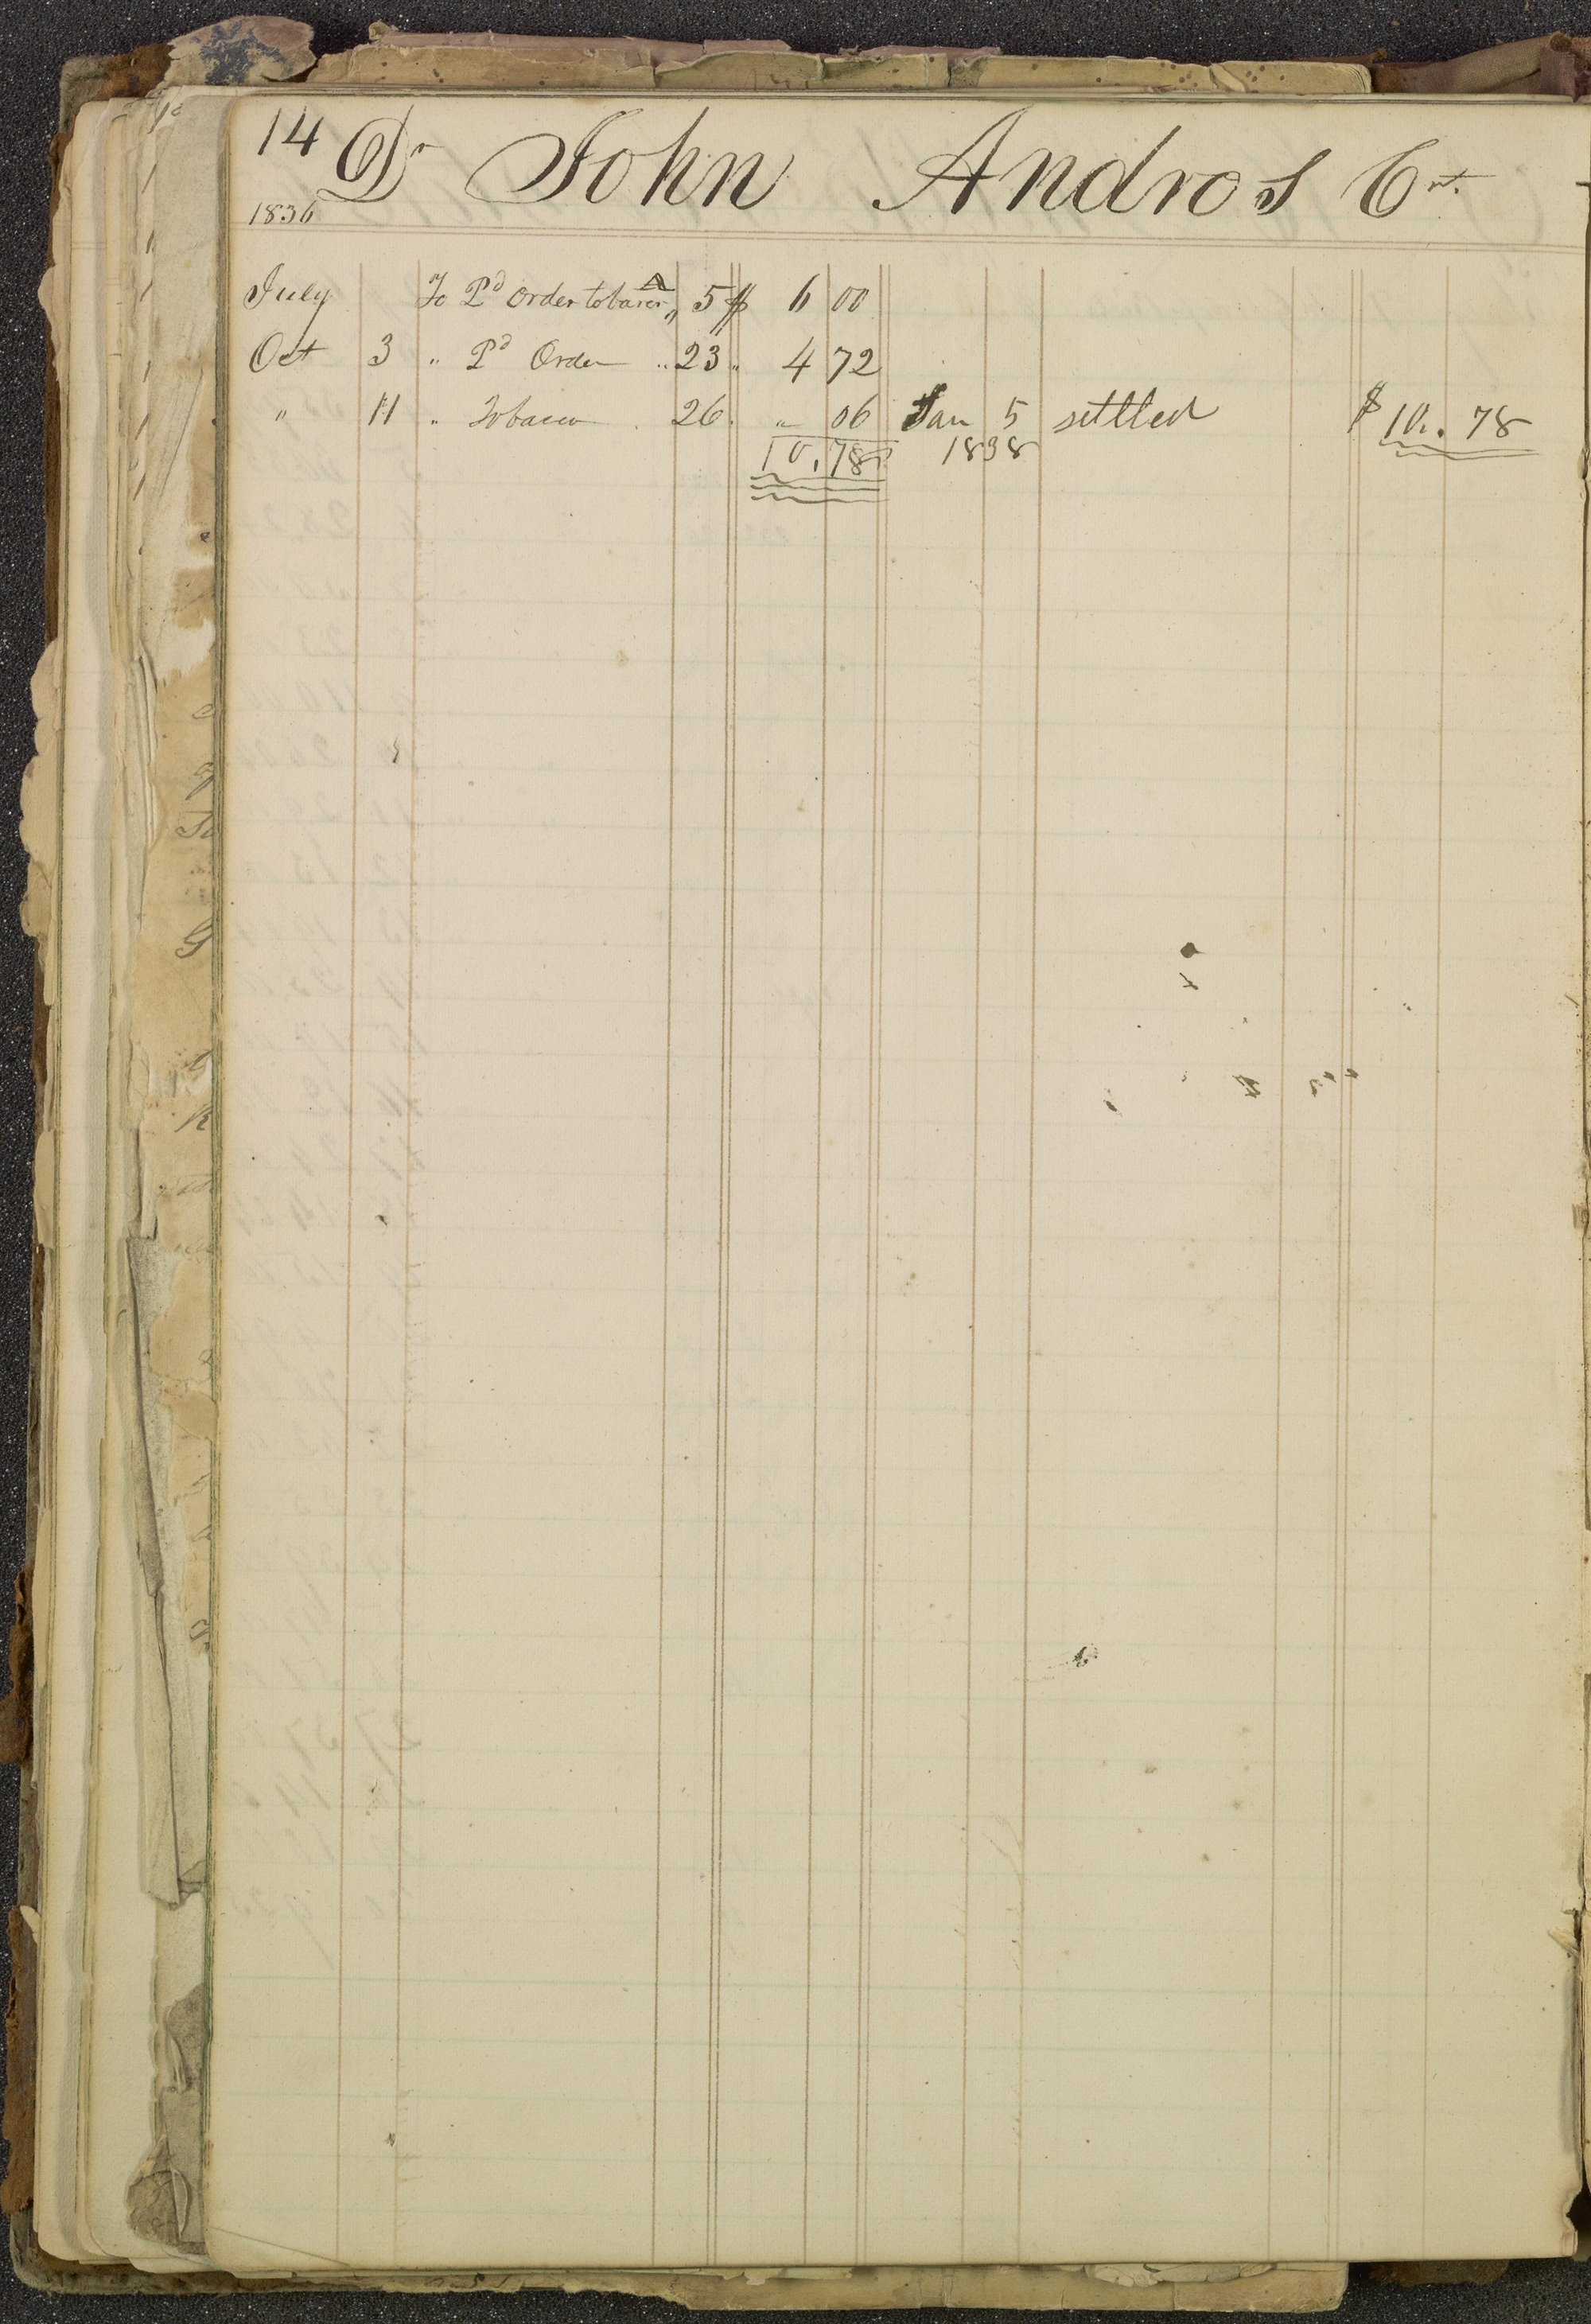 14 Dr John Andros Cr.
1836
July To Pd order tobacco " 5 $ 6 00
Oct 3 " Pd Order " 23 " 4 72
" 11 " Tobacco 26 " 06 Jan 5 settled $ 10. 78
10.78 1838